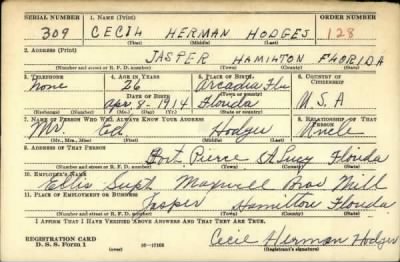 SERIAL NUMBER 1. NAME (Print) ORDER NUMBER
309 CECIL HERMAN HODGES 128
(First) (Middle) (Last)
2. ADDRESS (Print)
JASPER HAMILTON FLORIDA
(Number and street or R. F. D. number) (Town) (County) (State)
3. TELEPHONE 4. AGE IN YEARS 5. PLACE OF BIRTH 6. COUNTRY OF CITIZENSHIP
None 26 Arcadia Fla
DATE OF BIRTH (Town or county)
Apr 8-1914 Florida U.S.A
(Exchange) (Number) (Mo.) (Day) (Yr.) (State or country)
7. NAME OF PERSON WHO WILL ALWAYS KNOW YOUR ADDRESS 8. RELATIONSHIP OF THAT PERSON
Mr. Ed Hodges Uncle
(Mr., Mrs., Miss) (First) (Middle) (Last)
9. ADDRESS OF THAT PERSON
Fort Pierce St Lucy Florida
(Number and street or R. F. D. number) (Town) (County) (State)
10. EMPLOYER'S NAME
Ellis Supt Maxwell Bros Mill
11. PLACE OF EMPLOYMENT OR BUSINESS
Jasper Hamilton Florida
(Number and street or R. F. D. number) (Town) (County) (State)
I AFFIRM THAT I HAVE VERIFIED ABOVE ANSWERS AND THAT THEY ARE TRUE.
REGISTRATION CARD
D. S. S. Form 1 Cecil Herman Hodges
(Registrant's signature)